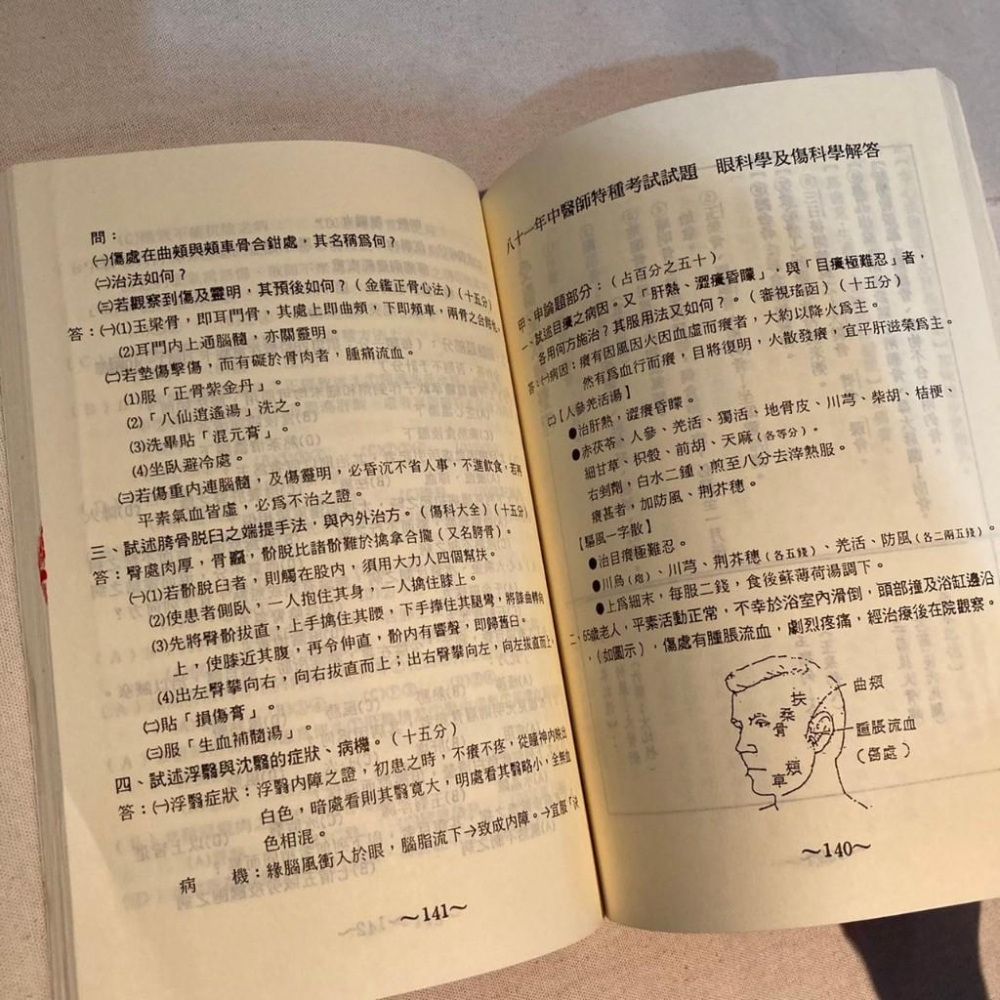 八十一年中醫師特種考試試題　眼科學及傷科學解答
甲、申論題部分：（占百分之五十）
一、試述目癢之病因。又「肝熱、澀癢昏矇」，與「目癢極難忍」者，
各用何方施治？其服用法又如何？。（審視瑤函）（十五分）
答：㈠病因：癢有因風因火因血虛而癢者，大約以降火爲主。
然有爲血行而癢，目將復明，火散發癢，宜平肝滋榮爲主。
㈡【人參羌活湯】
●治肝熱，澀癢昏矇。
●赤茯苓、人參、羌活、獨活、地骨皮、川芎、柴胡、桔梗、
細甘草、枳殼、前胡、天麻（各等分）。
右剉劑，白水二鍾，煎至八分去滓熱服。
癢甚者，加防風、荆芥穗。
【驅風一字散】
●治目癢極難忍。
●川烏（炮）、川芎、荆芥穗（各五錢）、羌活、防風（各二兩五錢）。
●上爲細末，每服二錢，食後蘇薄荷湯調下。
二、65歲老人，平素活動正常，不幸於浴室內滑倒，頭部撞及浴缸邊沿
，（如圖示），傷處有腫脹流血，劇烈疼痛，經治療後在院觀察。
扶桑骨
曲頰
腫脹流血
（傷處）
頰車
～140～
問：
㈠傷處在曲頰與頰車骨合鉗處，其名稱爲何？
㈡治法如何？
㈢若觀察到傷及靈明，其預後如何？（金鑑正骨心法）（十五分）
答：㈠⑴玉梁骨，即耳門骨，其處上即曲頰，下即頰車，兩骨之合鉗也。
⑵耳門內上通腦髓，亦關靈明。
㈡若墊傷擊傷，而有礙於骨肉者，腫痛流血。
⑴服「正骨紫金丹」。
⑵「八仙逍遙湯」洗之。
⑶洗畢貼「混元膏」。
⑷坐臥避冷處。
㈢若傷重內連腦髓，及傷靈明，必昏沉不省人事，不進飲食，若再
平素氣血皆虛，必爲不治之證。
三、試述胯骨脱臼之端提手法，與內外治方。（傷科大全）（十五分）
答：臀處肉厚，骨髎，骱脫比諸骱難於擒拿合攏（又名臗骨）。
㈠⑴若骱脫臼者，則觸在股内，須用大力人四個幫扶。
⑵使患者側臥，一人抱住其身，一人擒住膝上。
⑶先將臀骱拔直，上手擒住其腰，下手捧住其腿彎，將膝曲轉向
上，使膝近其腹，再令伸直，骱內有響聲，即歸舊臼。
⑷出左臀攀向右，向右拔直而上；出右臀攀向左，向左拔直而上。
㈡貼「損傷膏」。
㈢服「生血補髓湯」。
四、試述浮翳與沈翳的症狀、病機。（十五分）
答：㈠浮翳症狀：浮翳內障之證，初患之時，不癢不疼，從瞳神內映出
白色，暗處看則其翳寬大，明處看其翳略小，全無血
色相混。
病　機：緣腦風衝入於眼，腦脂流下→致成內障。→宜服「決
～141～